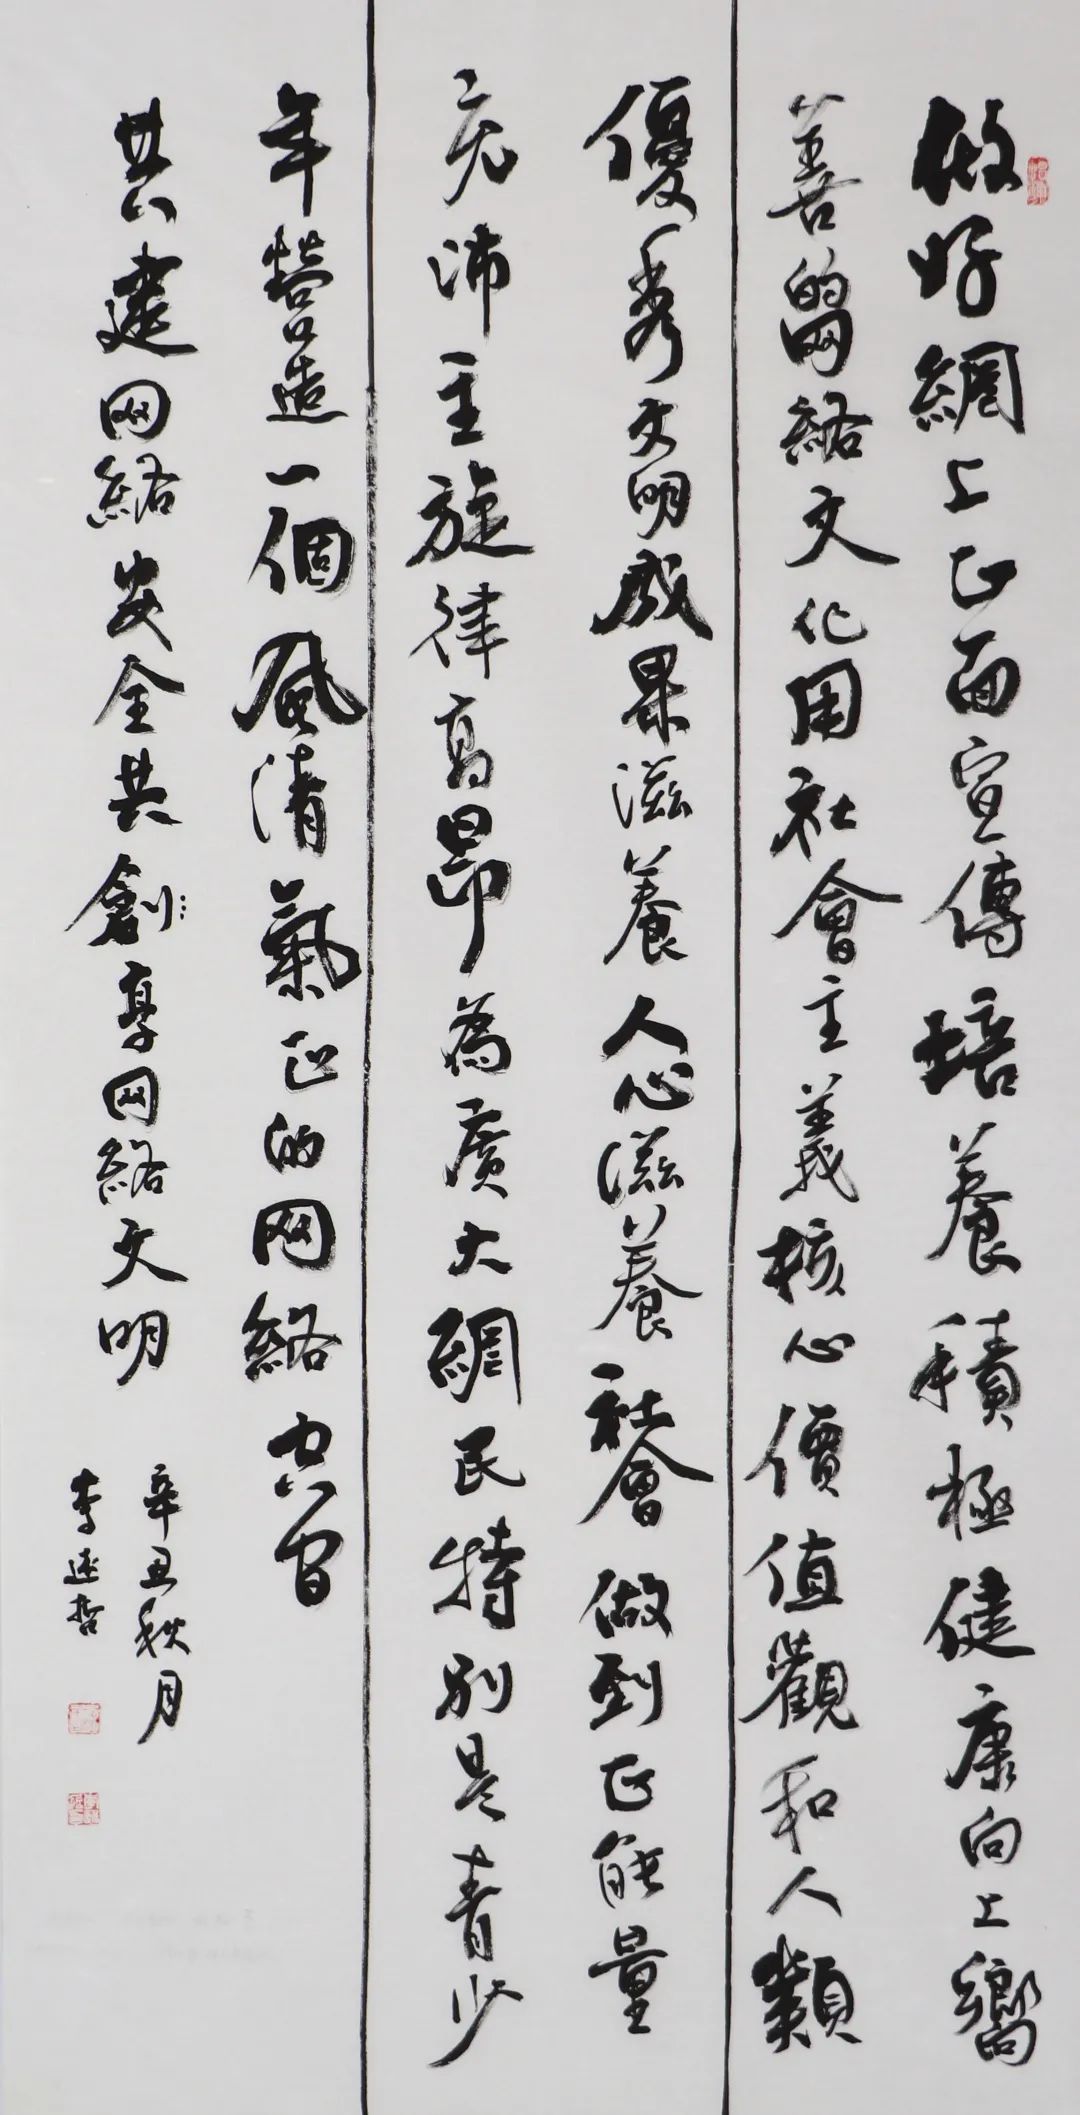 做好網上正面宣傳培養積極健康向上嚮
善的网絡文化用社會主義核心價值觀和人類
優秀文明成果滋養人心滋養社會做到正能量
充沛主旋律高昂為广大網民特別是青少
年營造一個風清氣正的网絡空间
共建网絡安全共創享网絡文明
辛丑秋月
李延哲